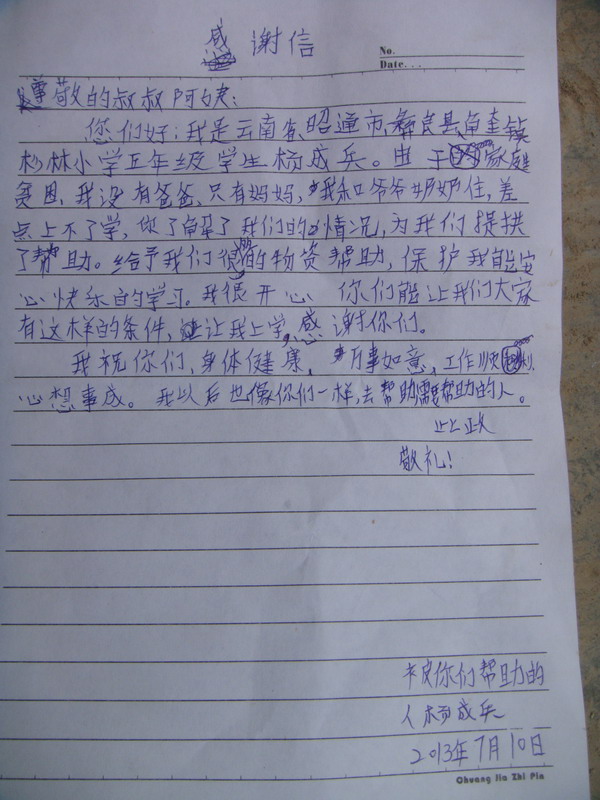 感谢信
No.
Date...
尊敬的叔叔阿姨:
您们好;我是云南省昭通市彝良县角奎镇
杉林小学五年级学生杨成兵。由于家庭
贫困,我没有爸爸,只有妈妈,我和爷爷奶奶住,差
点上不了学,您了解了我们的情况,为我们提拱
了帮助。给予我们很的物资帮助,保护我能安
心快乐的学习。我很开心 你们能让我们大家
有这样的条件,让我上学,感谢你们。
我祝你们,身体健康,万事如意,工作顺利
心想事成。我以后也像你们一样,去帮助需要帮助的人。
此政
敬礼!
被你们帮助的
人杨成兵
2013年7月10日
Chuang Jia Zhi Pin